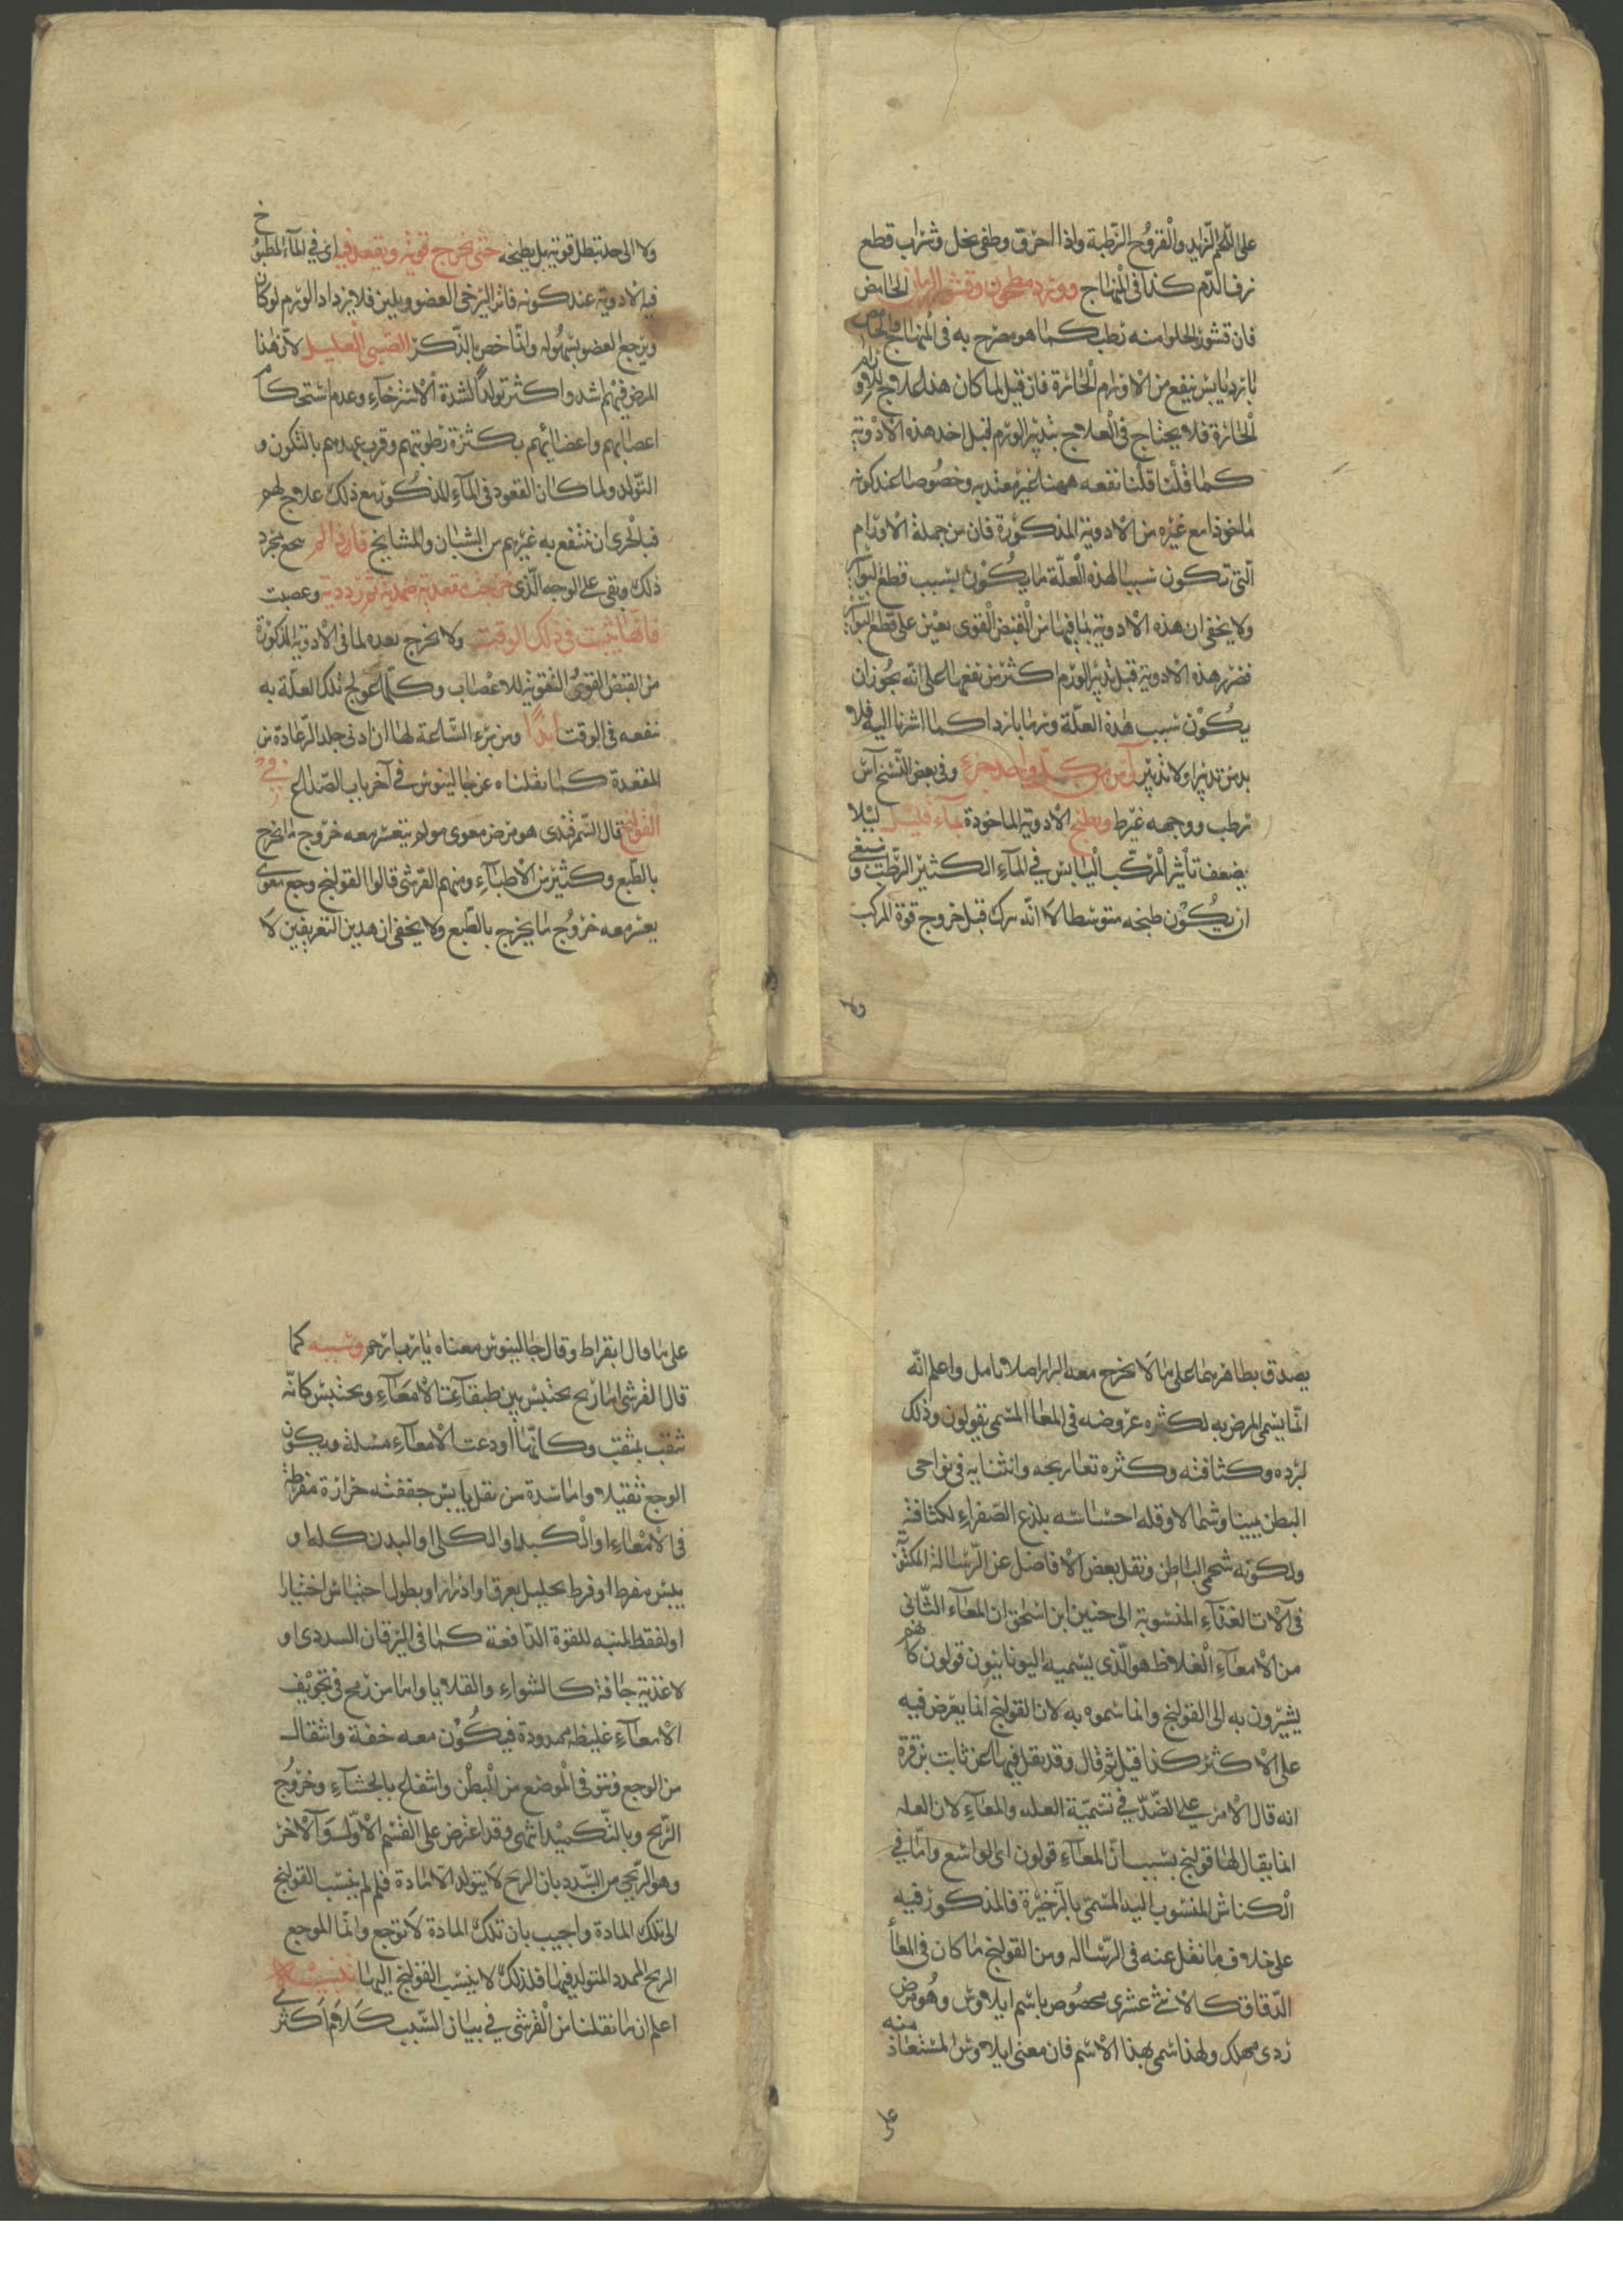 على اللحم الزايد والقروح الرطبة واذا احرق وطفى بخل وشراب قطع
نزف الدم كذا فى المنهاج وورد مطحون وقشر الرمان الحامض
فان قشور الحلو منه رطب كما هو مصرح به فى المنهاج والحامض
بارد يابس ينفع من الاورام الحائرة فان قيل لما كان هذا علاج للاورام
الحائرة فلا يحتاج فى العلاج بتدبير الورم قبل اخذ هذه الادوية
كما قلنا قلنا نفعه ههنا غير معتد به وخصوصا عند كونه
ماخوذا مع غيره من الادوية المذكورة فان من جملة الاورام
التى تكون سببا لهذه العلة ما يكون بسبب قطع البواسير
ولا يخفى ان هذه الادوية لما فيها من القبض القوى يعين على قطع البواسير
فضرر هذه الادوية قبل تدبير الورم اكثر من نفعها على انه يجوز ان
يكون سبب هذه العلة ورما باردا كما اشرنا اليه فلا
بد من تدبيرا ولا تدبير من كل واحد جزء وفى بعض النسخ آس
رطب ووجهه غير ويطبخ الادوية الماخوذة بماء قليل ليلا
يضعف تأثير المركب اليابس فى الماء الكثير الرطب وينبغى
ان يكون طبخه متوسطا لا انه يترك قبل خروج قوة المركب
ولا
ولا الى حد تبطل قوته بل يطبخه حتى يخرج قوته ويقعد فيه اى فى الماء المطبوخ
فيه الادوية عند كونه فاترا ليرخى العضو ويلين فلا يزداد الورم لو كان
ويرجع العضو بسهوله وانما خص بالذكر الصبى العليل لان هذا
المرض فيهم اشد واكثر تولدا لشدة الاسترخاء وعدم استحكام
اعصابهم واعضائهم بكثرة رطوبتهم وقرب عهدهم بالتكون و
التولد ولما كان القعود فى الماء المذكور مع ذلك علاج لهم
فبالحرى ان ينتفع به غيرهم من الشبان والمشايخ فان لم مجرد
ذلك وبقى على الوجه الذى خرجت مقعدته ضمدت ثم رددته وعصبت
فانها يثبت فى ذلك الوقت ولا يخرج بعده لما فى الادوية المذكورة
من القبض القوى التقوية للاعصاب وكلما عولج تلك العلة به
نفعه فى الوقت ابدا ومن برء الساعة لها ان ادنى جلد الرعادة من
المقعدة كما نقلناه عن جالينوس فى آخر باب الصداع فى
القولنج قال السمرقندى هو مرض معوى مولم يتعسر معه خروج ما يخرج
بالطبع وكثير من الاطباء ومنهم القرشى قالوا القولنج وجع معوى
يعسر معه خروج ما يخرج بالطبع ولا يخفى ان هذين التعريفين لا
يصدق بظاهرهما على ما لا يخرج معه البراز اصلا تامل واعلم انه
انما يسمى المرض به لكثره عروضه فى المعا المسمى بقولون وذلك
لبرده وكثافته وكثره تعاريجه وانثنايه فى نواحى
البطن يمينا وشمالا وقله احساسه بلذع الصفراء لكثافته
ولكونه شحمى الباطن ونقل بعض الافاضل عن الرسالة المكتوبة
فى آلات الغذاء المنسوبة الى حنين ابن اسحق ان المعاء الثانى
من الامعاء الغلاظ هو الذى يسميه اليونانيون قولون كانهم
يشيرون به الى القولنج وانما سموه به لان القولنج انما يعرض فيه
على الاكثر كذا قيل ثم قال وقد نقل فيها عن ثابت بن قرة
انه قال الامر على الضد فى تسمية العله والمعاء لان العله
انما يقال لها قولنج بسبب ان المعاء قولون اى الواسع واما فى
الكناش المنسوب اليه المسمى بالذخيرة فالمذكور فيه
على خلاف ما نقل عنه فى الرساله ومن القولنج ما كان فى المعا
الدقاق كالاثنى عشرى مخصوص باسم ايلاوس وهو مرض
ردى مهلك ولهذا سمى بهذا الاسم فان معنى ايلاوس المستعاذ منه
على
على ما قال ابقراط وقال جالينوس معناه يا رب ارحم وسببه كما
قال القرشى اما ريح يحتبس بين طبقات الامعاء ويحتبس كانه
ثقب بمثقب وكانما اودعت الامعاء مسلة ويكون
الوجع ثقيلا واما سدة من ثفل يابس جففته حرارة مفرطة
فى الامعاء او الكبد او الكلى او البدن كله او
يبس مفرط او فرط تحليل بعرق او ادرار او بطول احتباس اختيارا
او لفقد المنبه للقوة الدافعة كما فى اليرقان السددى او
لاغذية جافة كالشواء والقلايا واما من ريح فى تجويف
الامعاء غليظه ممدودة فيكون معه خفة وانتقال
من الوجع ونتو فى الموضع من البطن وانتفاع بالجشاء وخروج
الريح وبالتكميد انتهى وقد اعترض على القسم الاول والآخر
وهو الريحى من السدد بان الريح لا يتولد الا مادة فلم لم ينسب القولنج
الى تلك المادة واجيب بان تلك المادة لا توجع وانما الموجع
الريح الممدد المتولد فيها فلذلك لا ينسب القولنج اليها
اعلم ان ما نقلنا من القرشى فى بيان السبب كلام اكثر